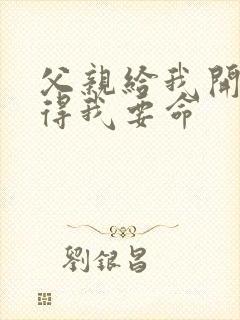 父親給我開
得我要命
劉銀昌